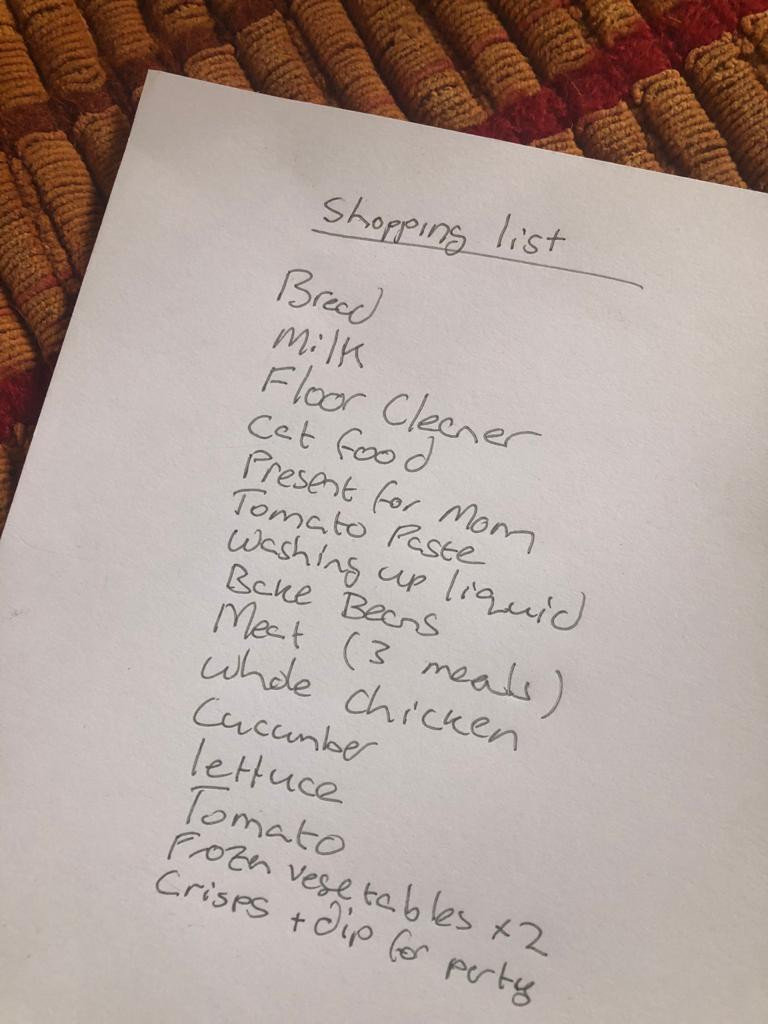 Shopping list
Bread
Milk
Floor Cleaner
Cat food
Present for Mom
Tomato Paste
Washing up liquid
Bake Beans
Meat (3 meals)
Whole Chicken
Cucumber
lettuce
Tomato
Frozen vegetables x2
Crisps + dip for party